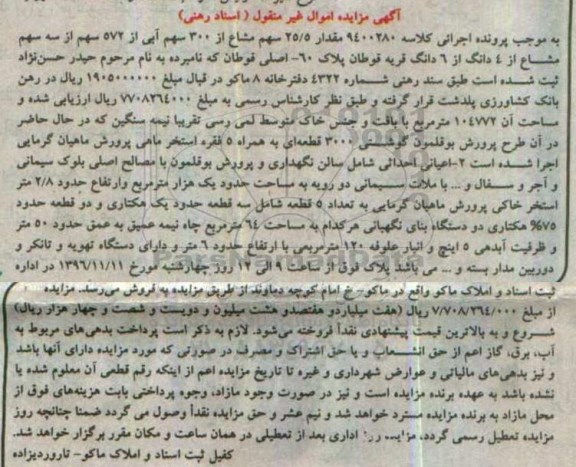 آگهی مزایده اموال غیر منقول ( اسناد رهنی)
به موجب پرونده اجرائی کلاسه ۹۴۰۰۲۸۰ مقدار ۲۵/۵ سهم مشاع از ۳۰۰ سهم آبی از ۵۷۲ سهم از سه سهم
مشاع از ۴ دانگ از ۶ دانگ قریه قوطان پلاک ۶۰- اصلی قوطان که نامبرده به نام مرحوم حیدر حسن‌نژاد
ثبت شده است طبق سند رهنی شماره ۴۳۲۲ دفترخانه ۸ ماکو در قبال مبلغ ۱۹۰۵۰۰۰۰۰۰ ریال در رهن
بانک کشاورزی پلدشت قرار گرفته و طبق نظر کارشناس رسمی به مبلغ ۷۷۰۸۲۶۴۰۰۰ ریال ارزیابی شده و
مساحت آن ۱۰۴۷۷۲ مترمربع با بافت و جنس خاک متوسط لمی رسی تقریبا نیمه سنگین که در حال حاضر
در آن طرح پرورش بوقلمون گوشتی ۳۰۰۰ قطعه‌ای به همراه ۵ فقره استخر ماهی پرورش ماهیان گرمابی
اجرا شده است ۲-اعیانی احداثی شامل سالن نگهداری و پرورش بوقلمون با مصالح اصلی بلوک سیمانی
و آجر و سفال و ... با ملات سیمانی دو رویه به مساحت حدود یک هزار مترمربع وارتفاع حدود ۲/۸ متر
استخر خاکی پرورش ماهیان گرمابی به تعداد ۵ قطعه شامل سه قطعه حدود یک هکتاری و دو قطعه حدود
۷۵% هکتاری دو دستگاه بنای نگهبانی هرکدام به مساحت ۶۴ مترمربع چاه نیمه عمیق به عمق حدود ۵۰ متر
و ظرفیت آبدهی ۵ اینچ و انبار علوفه ۱۲۰ مترمربعی با ارتفاع حدود ۶ متر و دارای دستگاه تهویه و تانکر و
دوربین مدار بسته و ... می باشد. پلاک فوق از ساعت ۹ الی ۱۲ روز چهارشنبه مورخ ۱۳۹۶/۱۱/۱۱ در اداره
ثبت اسناد و املاک ماکو واقع در ماکو- خ امام کوچه دماوند از طریق مزایده به فروش می‌رسد. مزایده
از مبلغ ۷/۷۰۸/۲۶۴/۰۰۰ ریال (هفت میلیاردو هفتصدو هشت میلیون و دویست و شصت و چهار هزار ریال)
شروع و به بالاترین قیمت پیشنهادی نقداً فروخته می‌شود. لازم به ذکر است پرداخت بدهی‌های مربوط به
آب، برق، گاز اعم از حق انشعاب و یا حق اشتراک و مصرف در صورتی که مورد مزایده دارای آنها باشد
و نیز بدهی‌های مالیاتی و عوارض شهرداری و غیره تا تاریخ مزایده اعم از اینکه رقم قطعی آن معلوم شده یا
نشده باشد به عهده برنده مزایده است و نیز در صورت وجود مازاد، وجوه پرداختی بابت هزینه‌های فوق از
محل مازاد به برنده مزایده مسترد خواهد شد و نیم عشر و حق مزایده نقداً وصول می گردد ضمنا چنانچه روز
مزایده تعطیل رسمی گردد، مزایده روز اداری بعد از تعطیلی در همان ساعت و مکان مقرر برگزار خواهد شد.
کفیل ثبت اسناد و املاک ماکو- تاروردیزاده
ParsNamadData